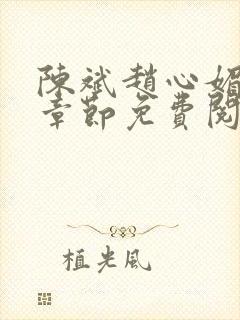 陳斌趙心媚
章節免費閱
植光風